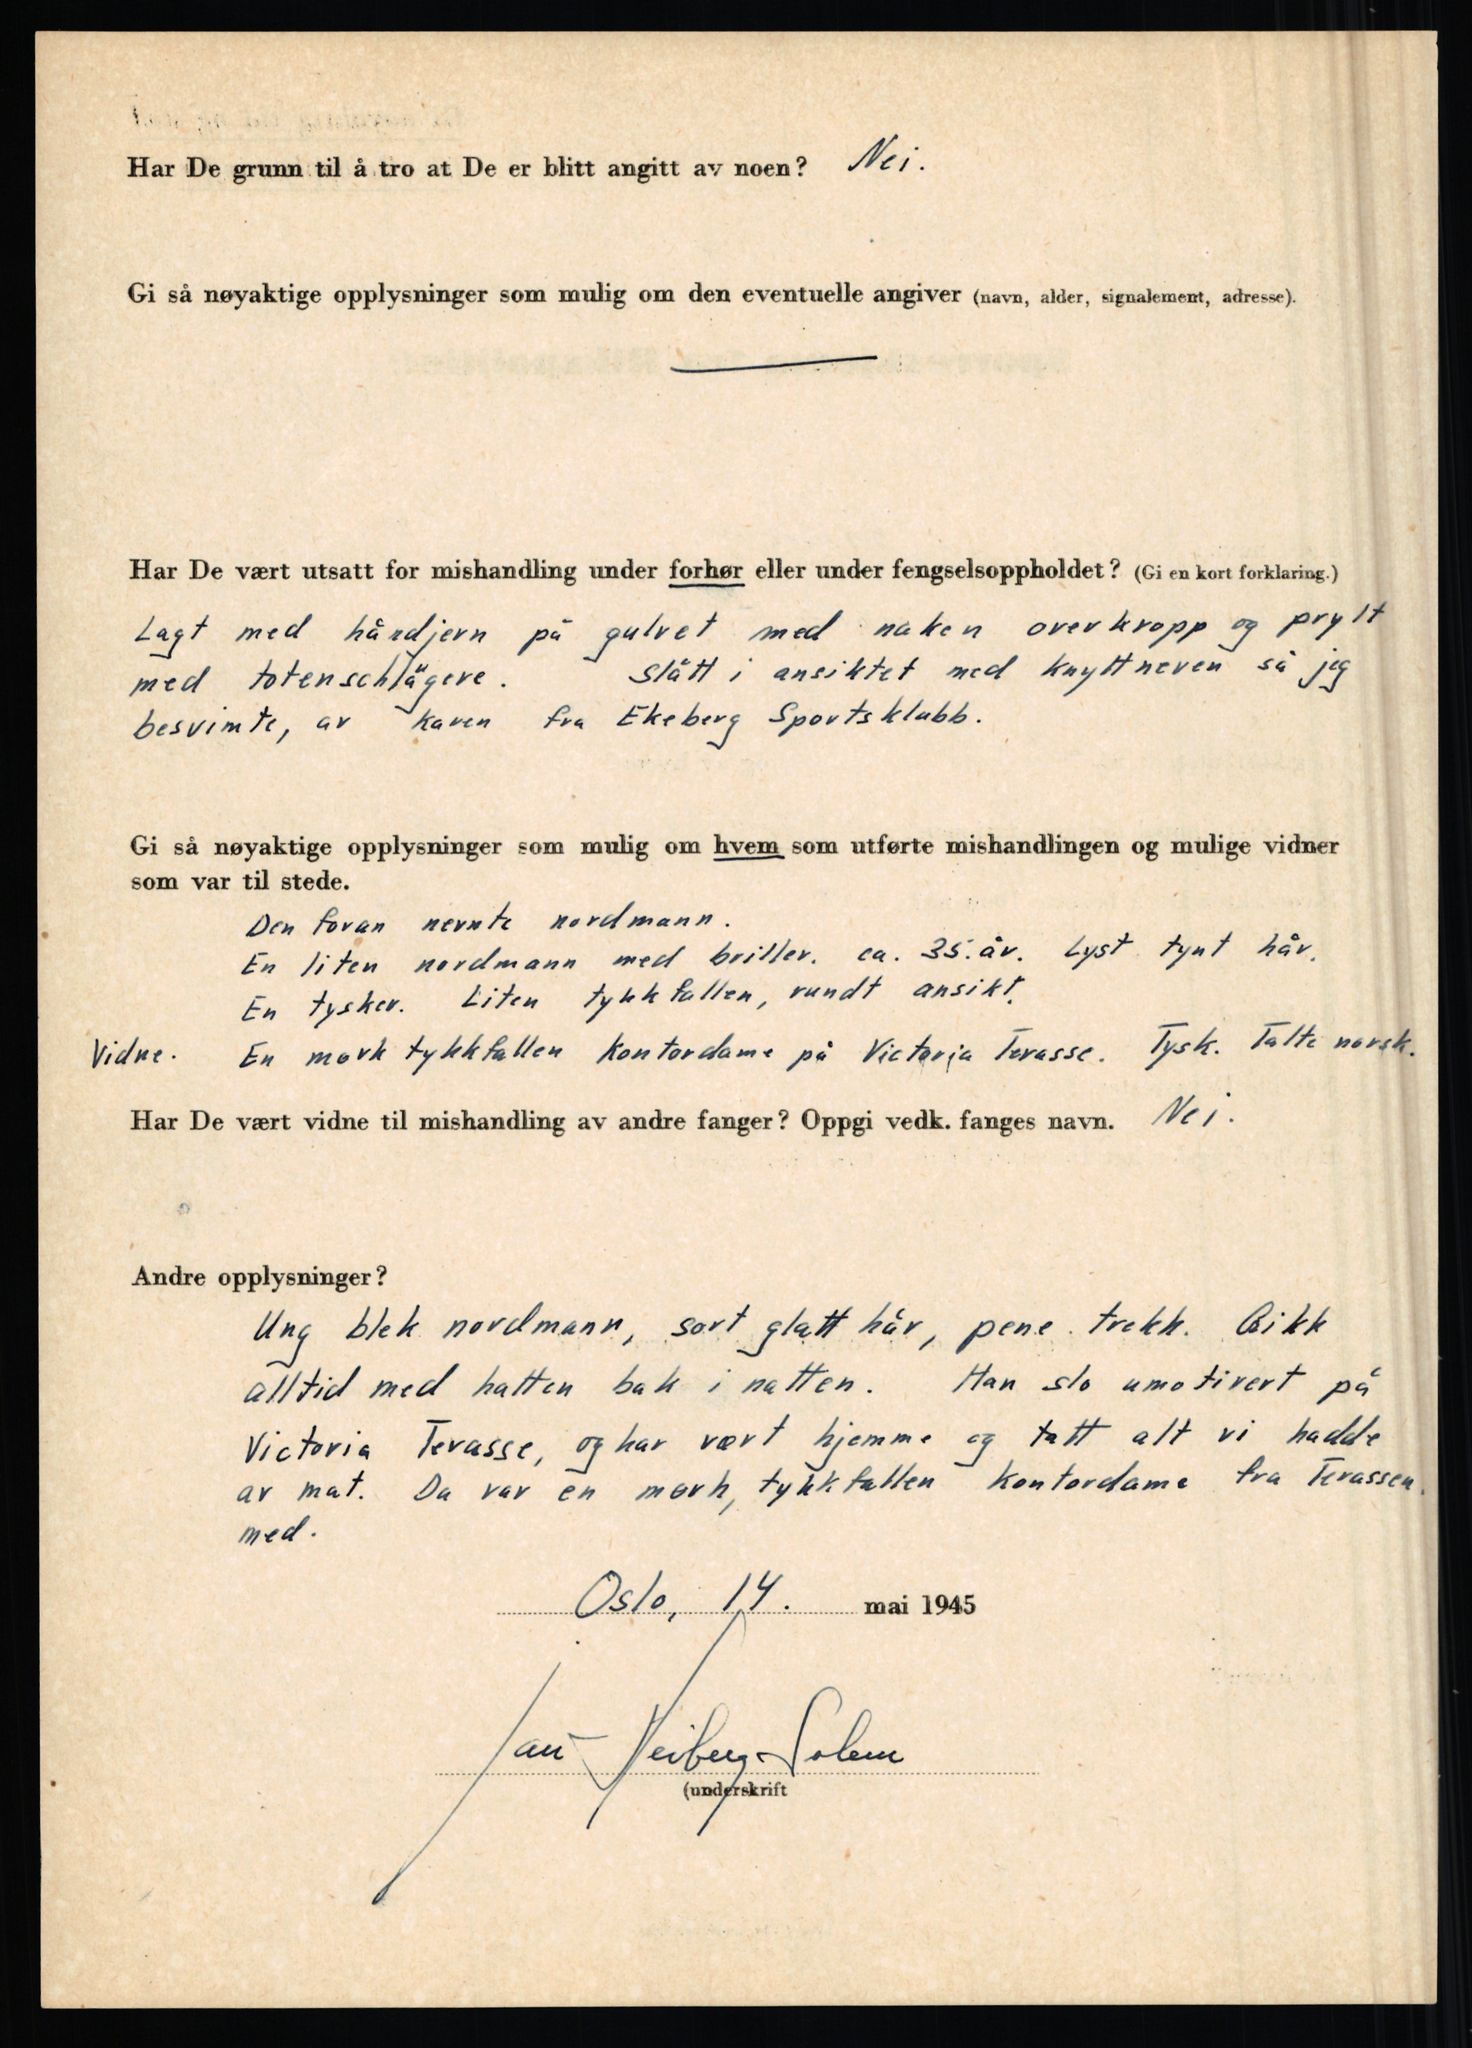 Har De grunn til å tro at De er blitt angitt av noen? Nei.
Gi så nøyaktige opplysninger som mulig om den eventuelle angiver (navn, alder, signalement, adresse).
Har De vært utsatt for mishandling under forhør eller under fengselsoppholdet? (Gi en kort forklaring.)
Lagt med håndjern på gulvet med naken overkropp og prylt
med totenschlägere. Slått i ansiktet med knyttneven så jeg
besvimte, av karen fra Ekeberg Sportsklubb.
Gi så nøyaktige opplysninger som mulig om hvem som utførte mishandlingen og mulige vidner
som var til stede.
Den foran nevnte nordmann.
En liten nordmann med briller. ca. 35. år. Lyst tynt hår.
En tysker. Liten tykkfallen, rundt ansikt.
Vidne. En mørk tykkfallen kontordame på Victoria Terasse. Tysk. Talte norsk.
Har De vært vidne til mishandling av andre fanger? Oppgi vedk. fanges navn. Nei.
Andre opplysninger?
Ung blek nordmann, sort glatt hår, pene trekk. Gikk
alltid med hatten bak i natten. Han slo umotivert på
Victoria Terasse, og har vært hjemme og tatt alt vi hadde
av mat. Da var en mørk, tykkfallen kontordame fra Terassen
med.
Oslo, 14. mai 1945
Jan Heiberg Solem
(underskrift